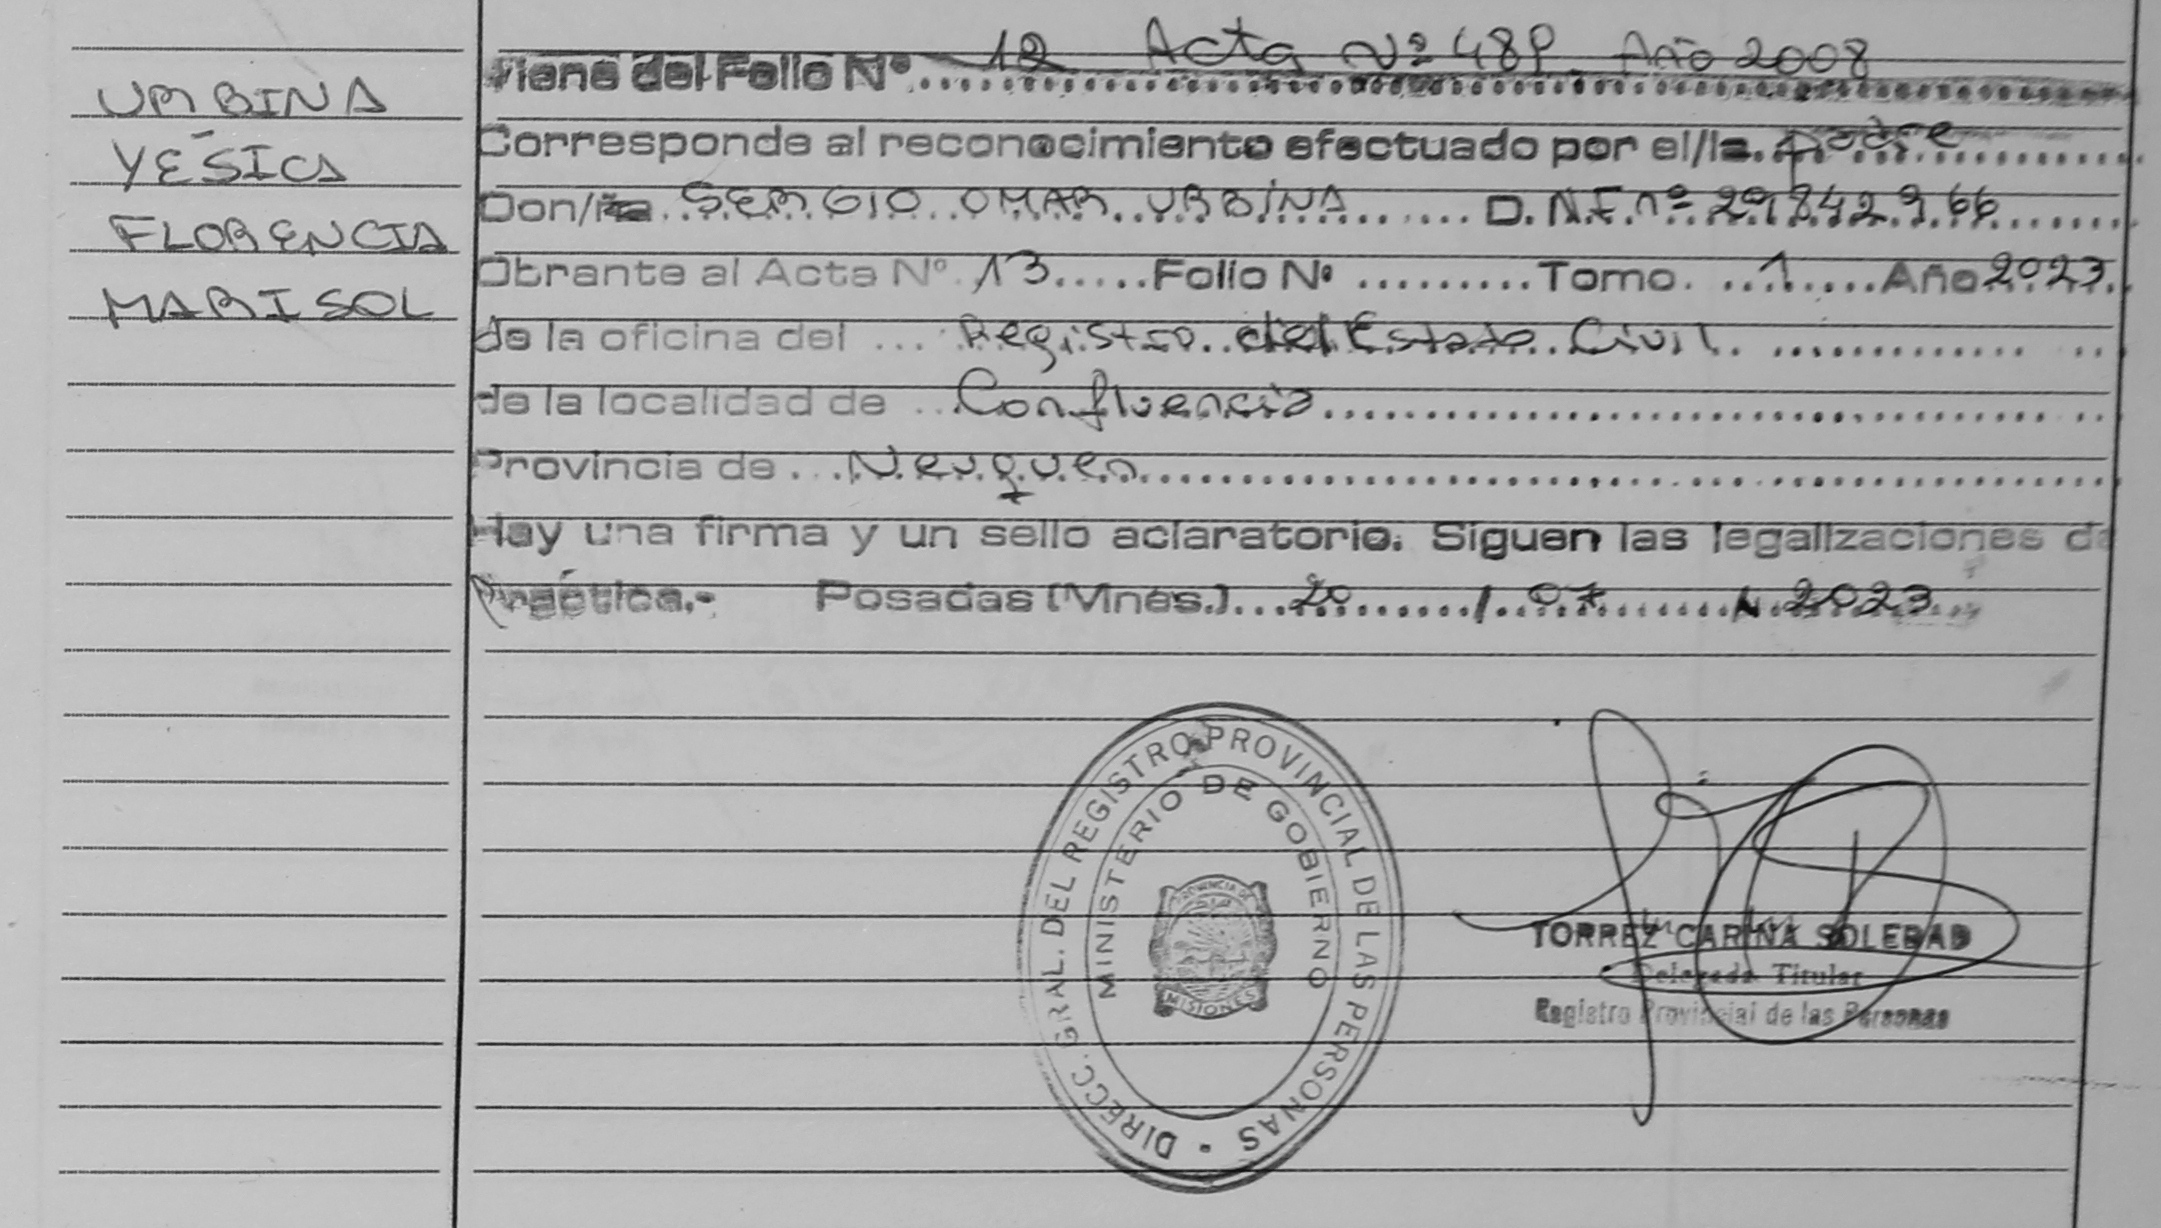 URBINA
YÉSICA
FLORENCIA
MARISOL
Viene del Folio Nº 12 Acta Nº 489 Año 2008
Corresponde al reconocimiento efectuado por el/la. padre
Don/ña SERGIO OMAR URBINA D.N.I. nº 29.842.966
Obrante al Acta Nº 13 Folio Nº Tomo. 1 Año 2023.
de la oficina del Registro del Estado Civil.
de la localidad de Confluencia
Provincia de Neuquen
Hay una firma y un sello aclaratorio. Siguen las legalizaciones de
Práctica.- Posadas (Mnes.) 20 / 07 / 2023
DIRECC. GRAL. DEL REGISTRO PROVINCIAL DE LAS PERSONAS
MINISTERIO DE GOBIERNO
PROVINCIA DE
MISIONES
TORREZ CARINA SOLEDAD
Delegada Titular
Registro Provincial de las Personas